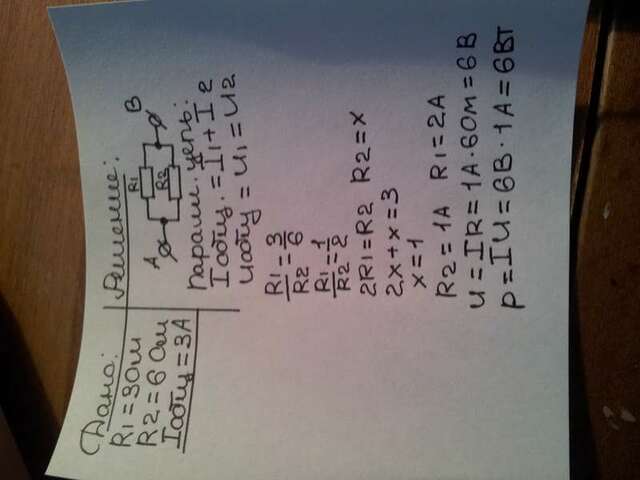 Дано:
R1=3Ом
R2=6 Ом
Iобщ=3А
Решение:
R1
R2
A
B
Паралл. цепь:
Iобщ.=I1+I2
Uобщ=U1=U2
R1/R2=3/6
R1/R2=1/2
2R1=R2 R2=x
2x+x=3
x=1
R2=1A R1=2A
U=IR=1A·6Ом=6В
P=IU=6В·1А=6Вт